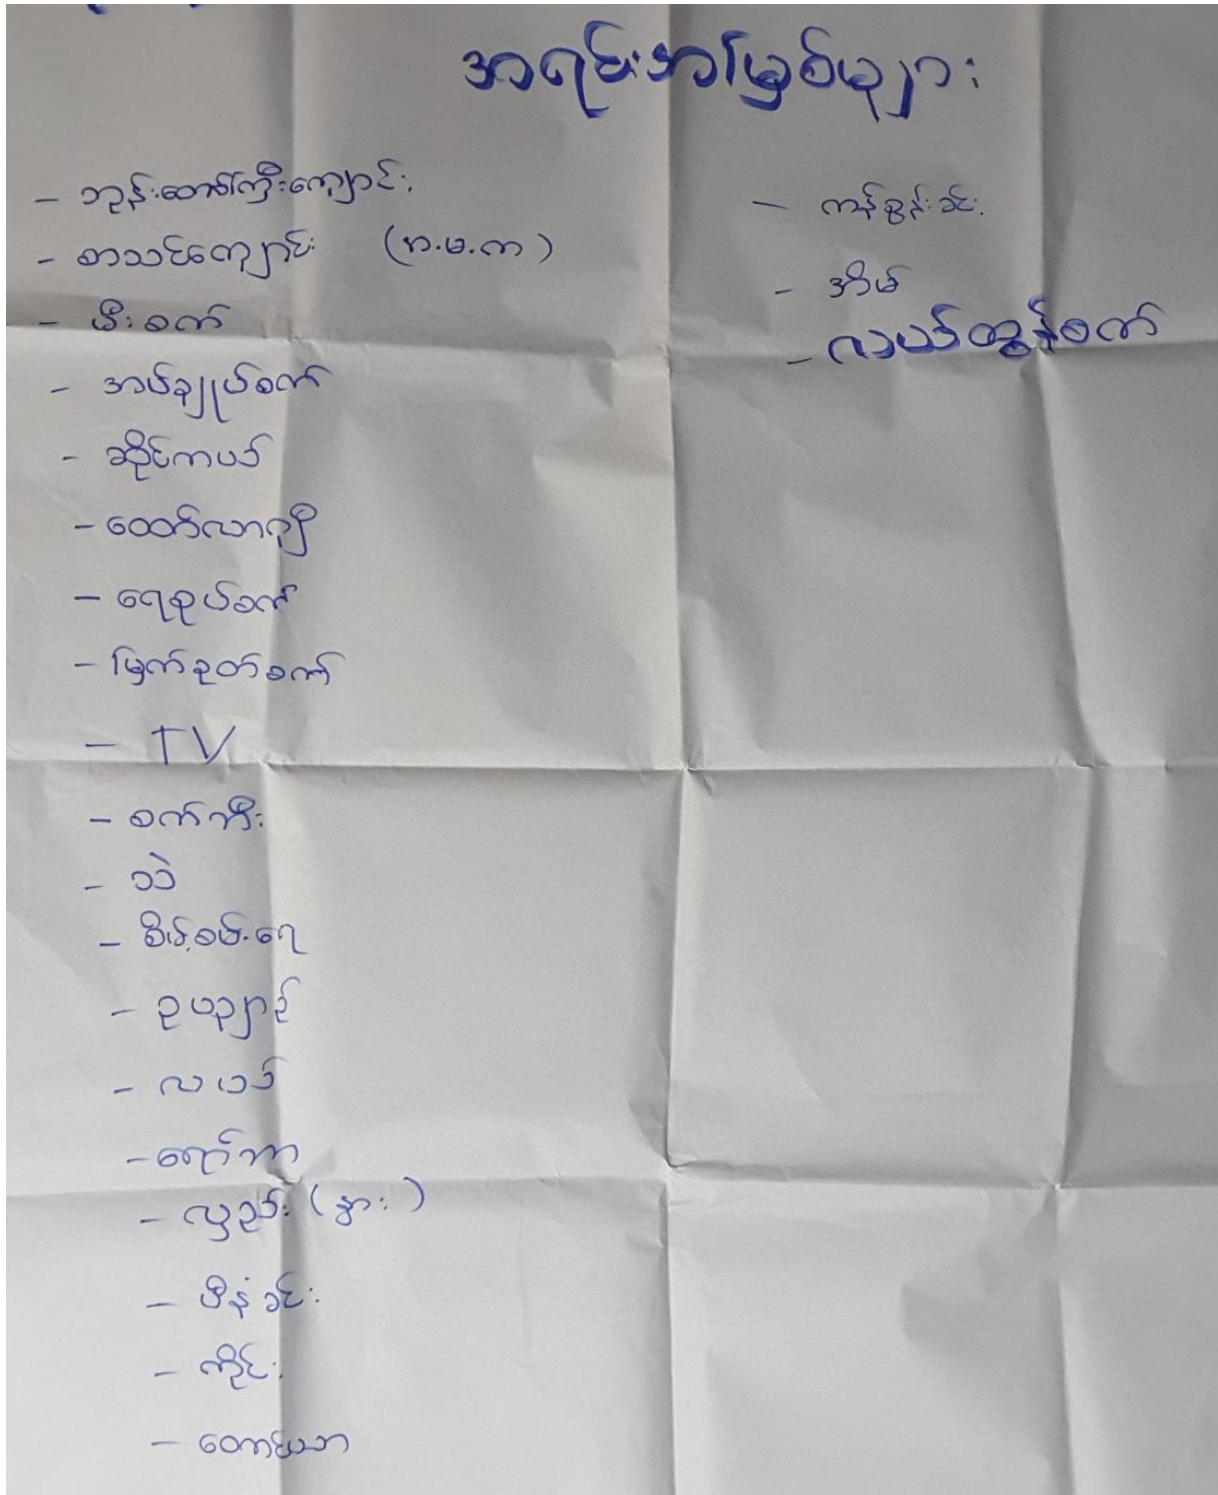 အရင်းအမြစ်များ
- ဘုန်းတော်ကြီးကျောင်း
- စာသင်ကျောင်း (က.မ.က)
- မီးစက်
- အပ်ချုပ်စက်
- ဆိုင်ကယ်
- ထော်လာဂျီ
- ရေစုပ်စက်
- မြက်ခုတ်စက်
- TV
- စက်ဘီး
- သဲ
- စိမ့်စမ်းရေ
- ဥယျာဉ်
- လယ်
- ရော်ဘာ
- လှည်း (နွား)
- မိနံခင်း
- ကိုင်း
- တောင်ယာ
- ကန်စွန်းခင်း
- အိမ်
- လယ်ထွန်စက်